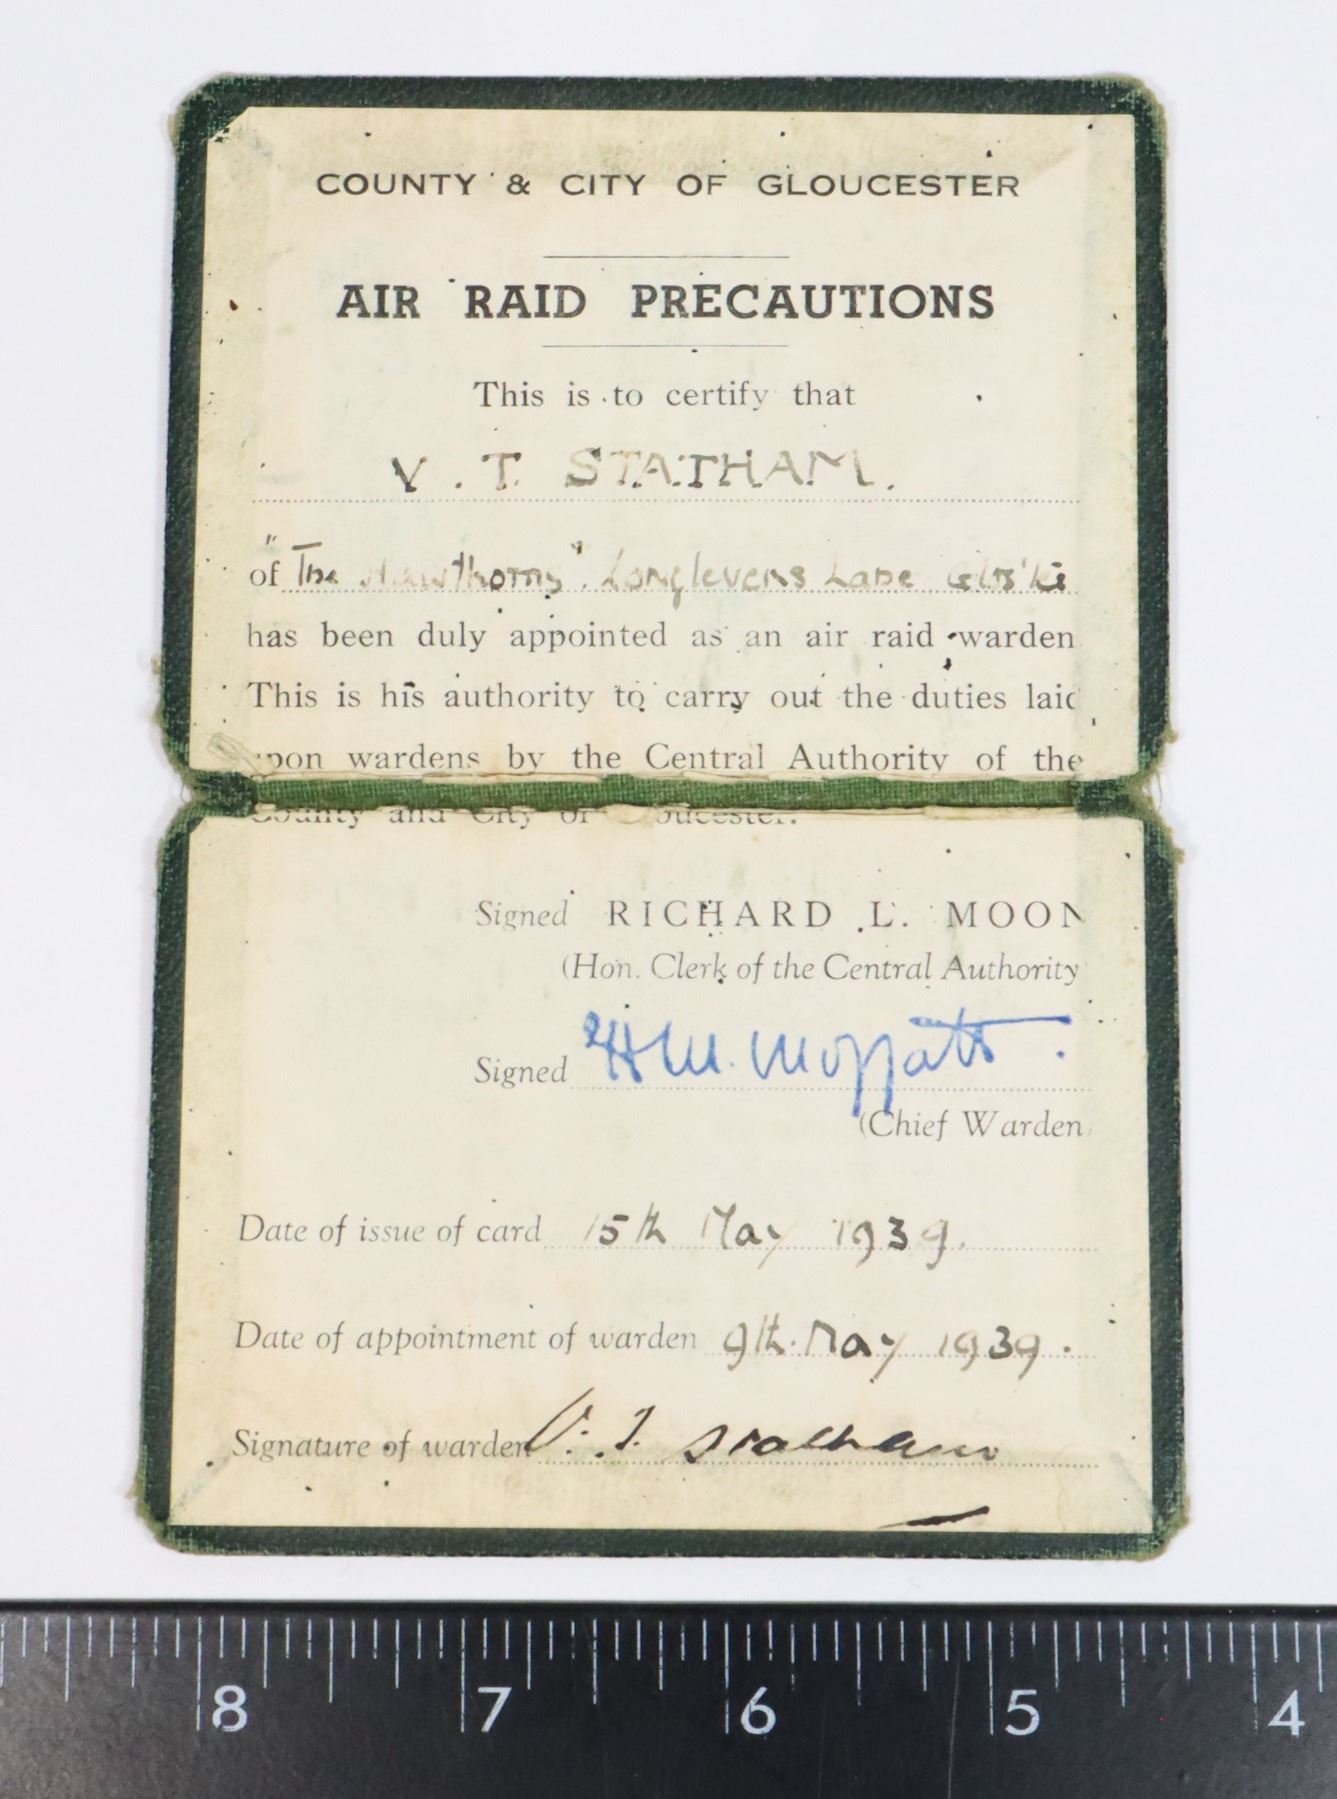 COUNTY & CITY OF GLOUCESTER
AIR RAID PRECAUTIONS
This is to certify that
V. T. STATHAM.
of "The Hawthorns". Longlevens Lane
has been duly appointed as an air raid warden
This is his authority to carry out the duties laid
upon wardens by the Central Authority of the
County and City of Gloucester.
Signed RICHARD L. MOON
(Hon. Clerk of the Central Authority
Signed M. Moffatt.
(Chief Warden)
Date of issue of card 15th May 1939.
Date of appointment of warden 9th. May 1939.
Signature of warden V. T. Statham
8 7 6 5 4